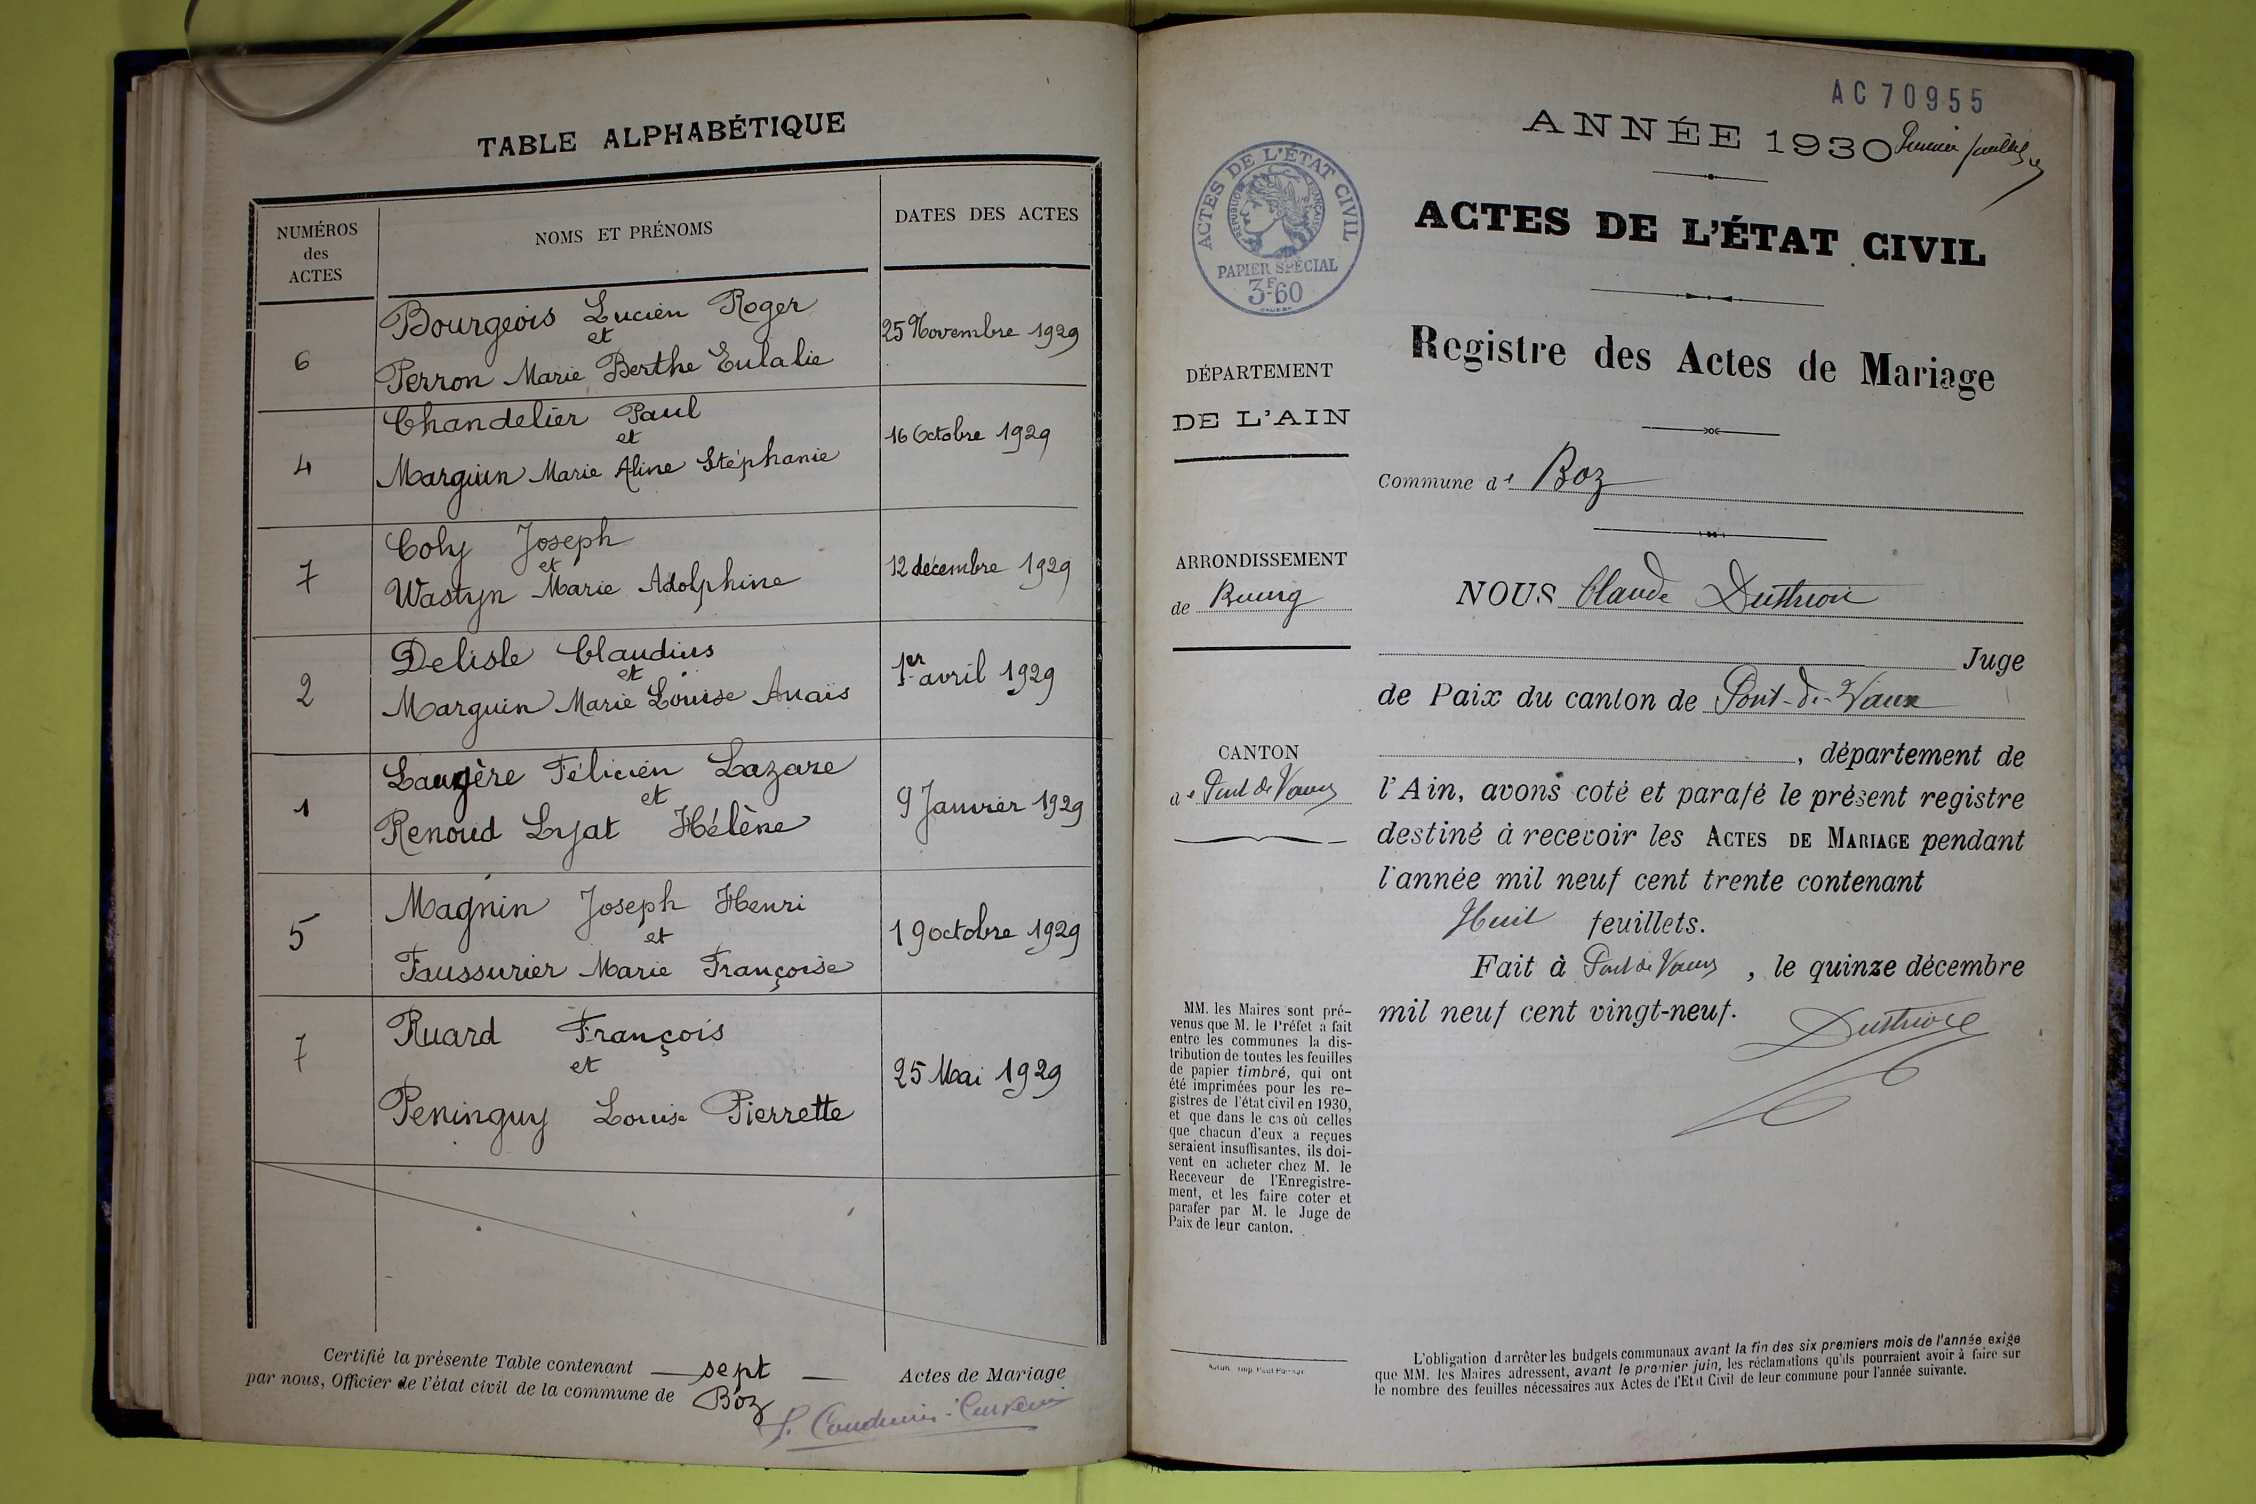 TABLE ALPHABÉTIQUE
NUMÉROS
des
ACTES
NOMS ET PRÉNOMS
DATES DES ACTES
6
Bourgeois Lucien Roger
et
Perron Marie Berthe Eulalie
25 Novembre 1929
4
Chandelier Paul
et
Marguin Marie Aline Stéphanie
16 Octobre 1929
7
Coly Joseph
et
Wastyn Marie Adolphine
12 décembre 1929
2
Delisle Claudius
et
Marguin Marie Louise Anaïs
1er avril 1929
1
Laugère Félicien Lazare
et
Renoud Lyat Hélène
9 Janvier 1929
5
Magnin Joseph Henri
et
Faussurier Marie Françoise
19 octobre 1929
7
Ruard François
et
Peninguy Louise Pierrette
25 Mai 1929
Certifié la présente Table contenant sept Actes de Mariage
par nous, Officier de l'état civil de la commune de Boz
AC 70955
ANNÉE 1930 Premier feuillet
ACTES DE L'ÉTAT CIVIL
RÉPUBLIQUE FRANÇAISE
PAPIER SPÉCIAL
3F60
ACTES DE L'ÉTAT CIVIL
Registre des Actes de Mariage
DÉPARTEMENT
DE L'AIN
Commune de Boz
ARRONDISSEMENT
de Bourg
CANTON
de Pont de Vaux
NOUS Claude
Juge
de Paix du canton de Pont-de-Vaux
, département de
l'Ain, avons coté et parafé le présent registre
destiné à recevoir les ACTES DE MARIAGE pendant
l'année mil neuf cent trente contenant
Huit feuillets.
Fait à Pont de Vaux, le quinze décembre
mil neuf cent vingt-neuf.
MM. les Maires sont pré-
venus que M. le Préfet a fait
entre les communes la dis-
tribution de toutes les feuilles
de papier timbré, qui ont
été imprimées pour les re-
gistres de l'état civil en 1930,
et que dans le cas où celles
que chacun d'eux a reçues
seraient insuffisantes, ils doi-
vent en acheter chez M. le
Receveur de l'Enregistre-
ment, et les faire coter et
parafer par M. le Juge de
Paix de leur canton.
L'obligation d'arrêter les budgets communaux avant la fin des six premiers mois de l'année exige
que MM. les Maires adressent, avant le premier juin, les réclamations qu'ils pourraient avoir à faire sur
le nombre des feuilles nécessaires aux Actes de l'Etat Civil de leur commune pour l'année suivante.